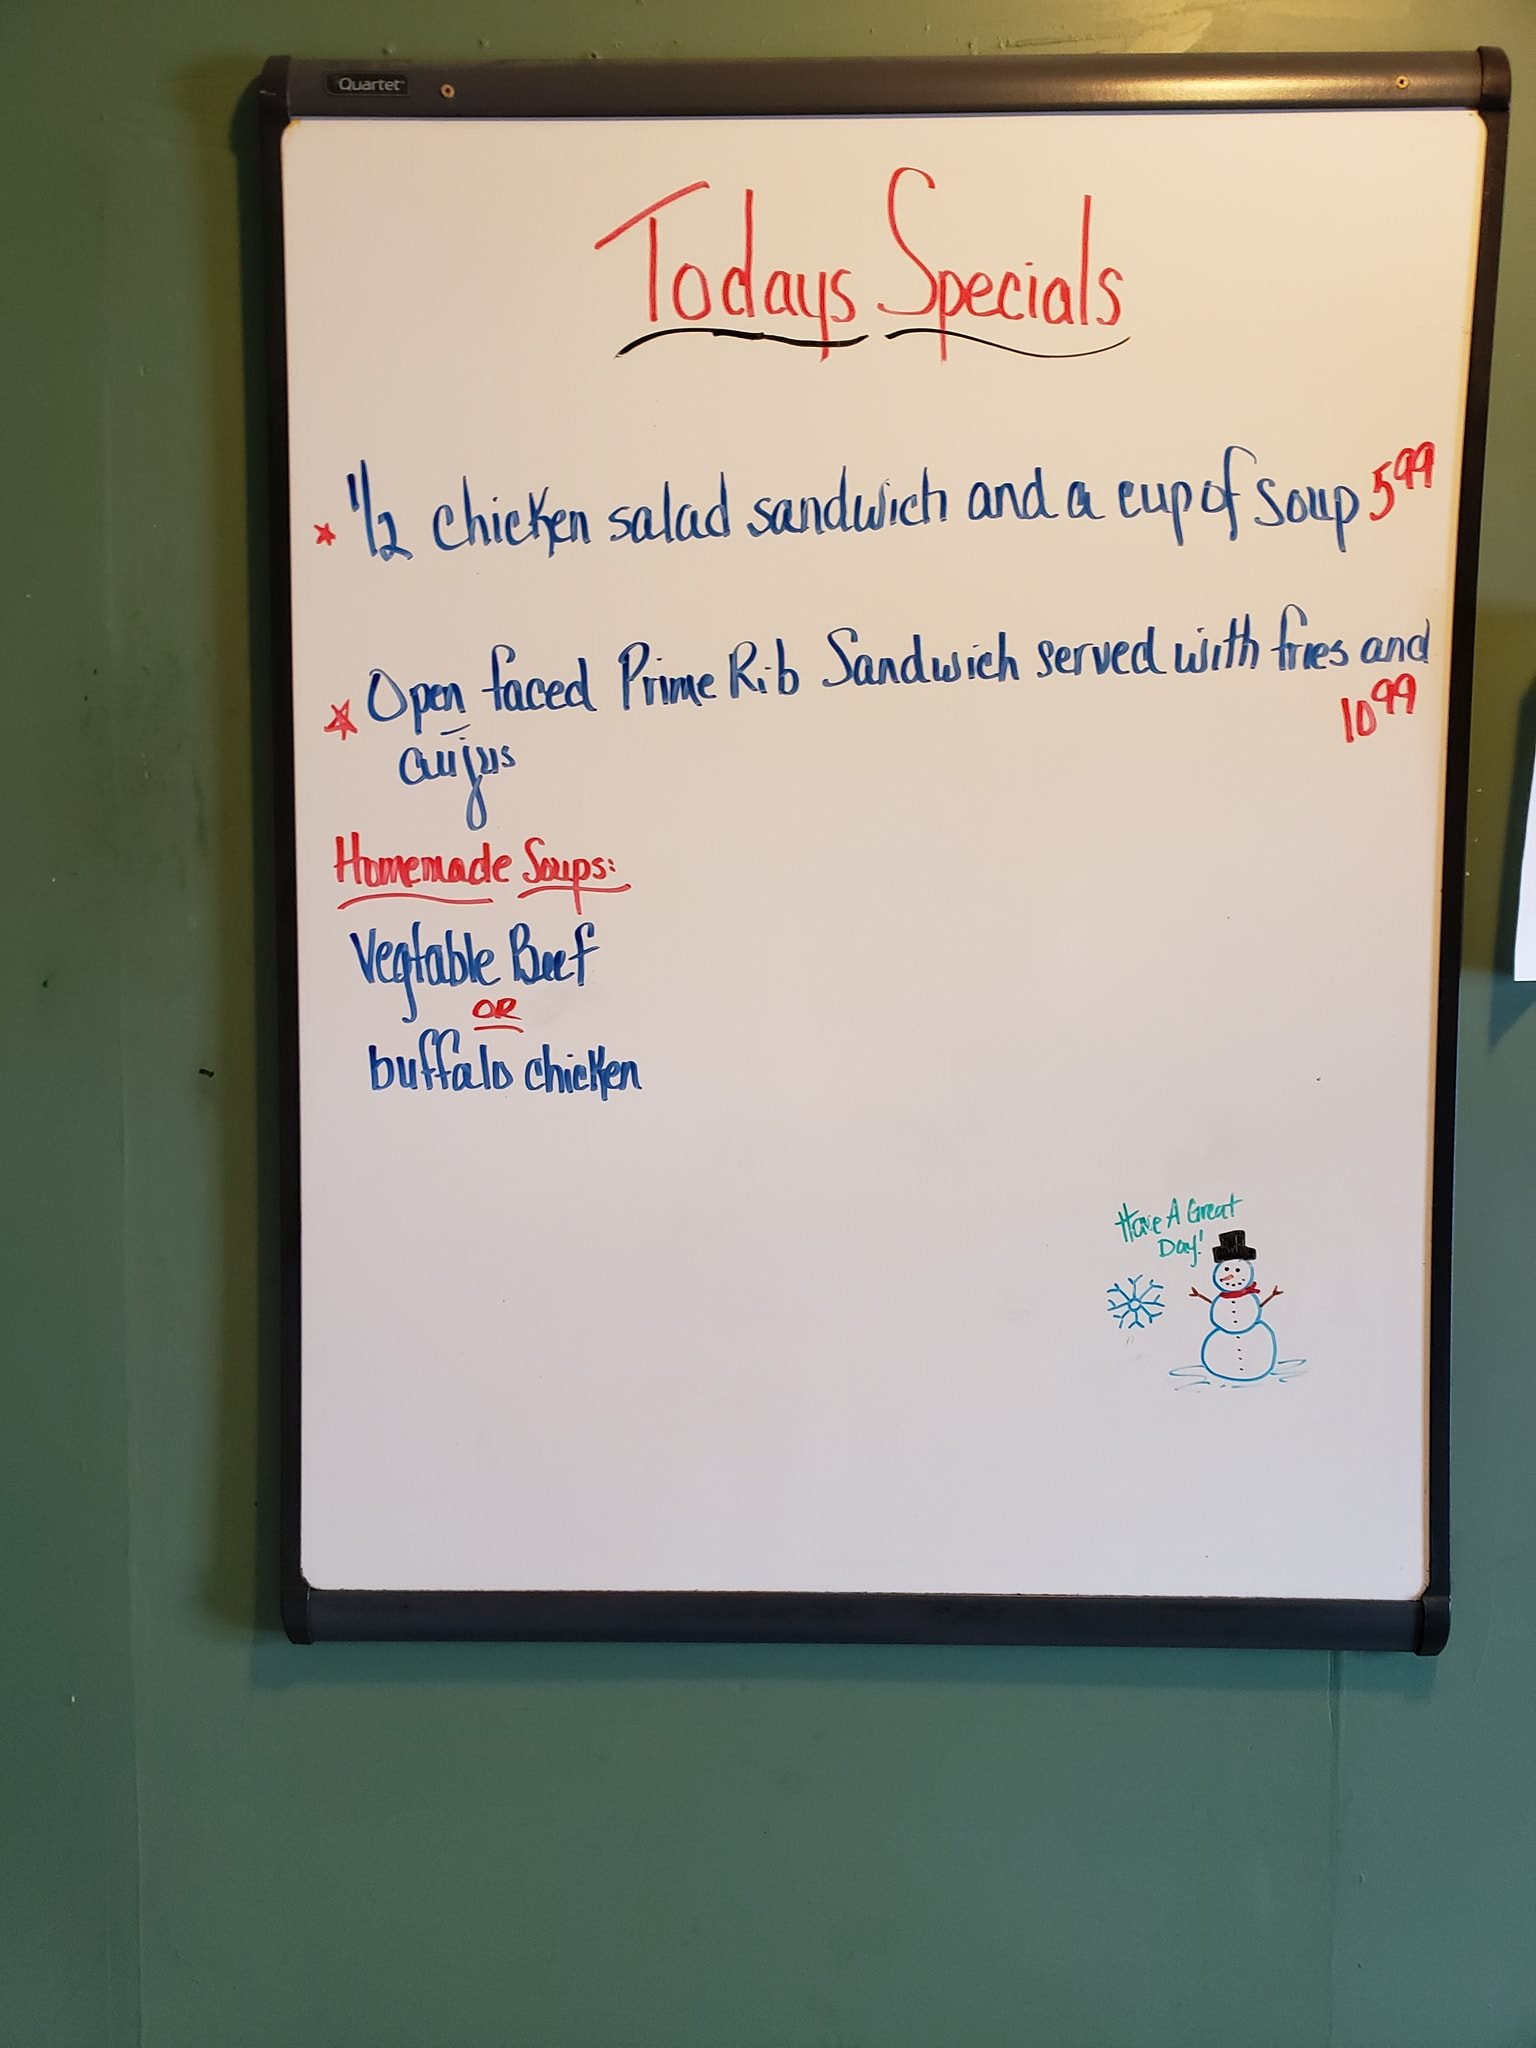 Quartet
Todays Specials
* 1/2 chicken salad sandwich and a cup of soup 5.99
* Open faced Prime Rib Sandwich served with fries and
10.99
aujus
Homemade Soups:
Vegtable Beef
OR
buffalo chicken
Have A Great
Day!